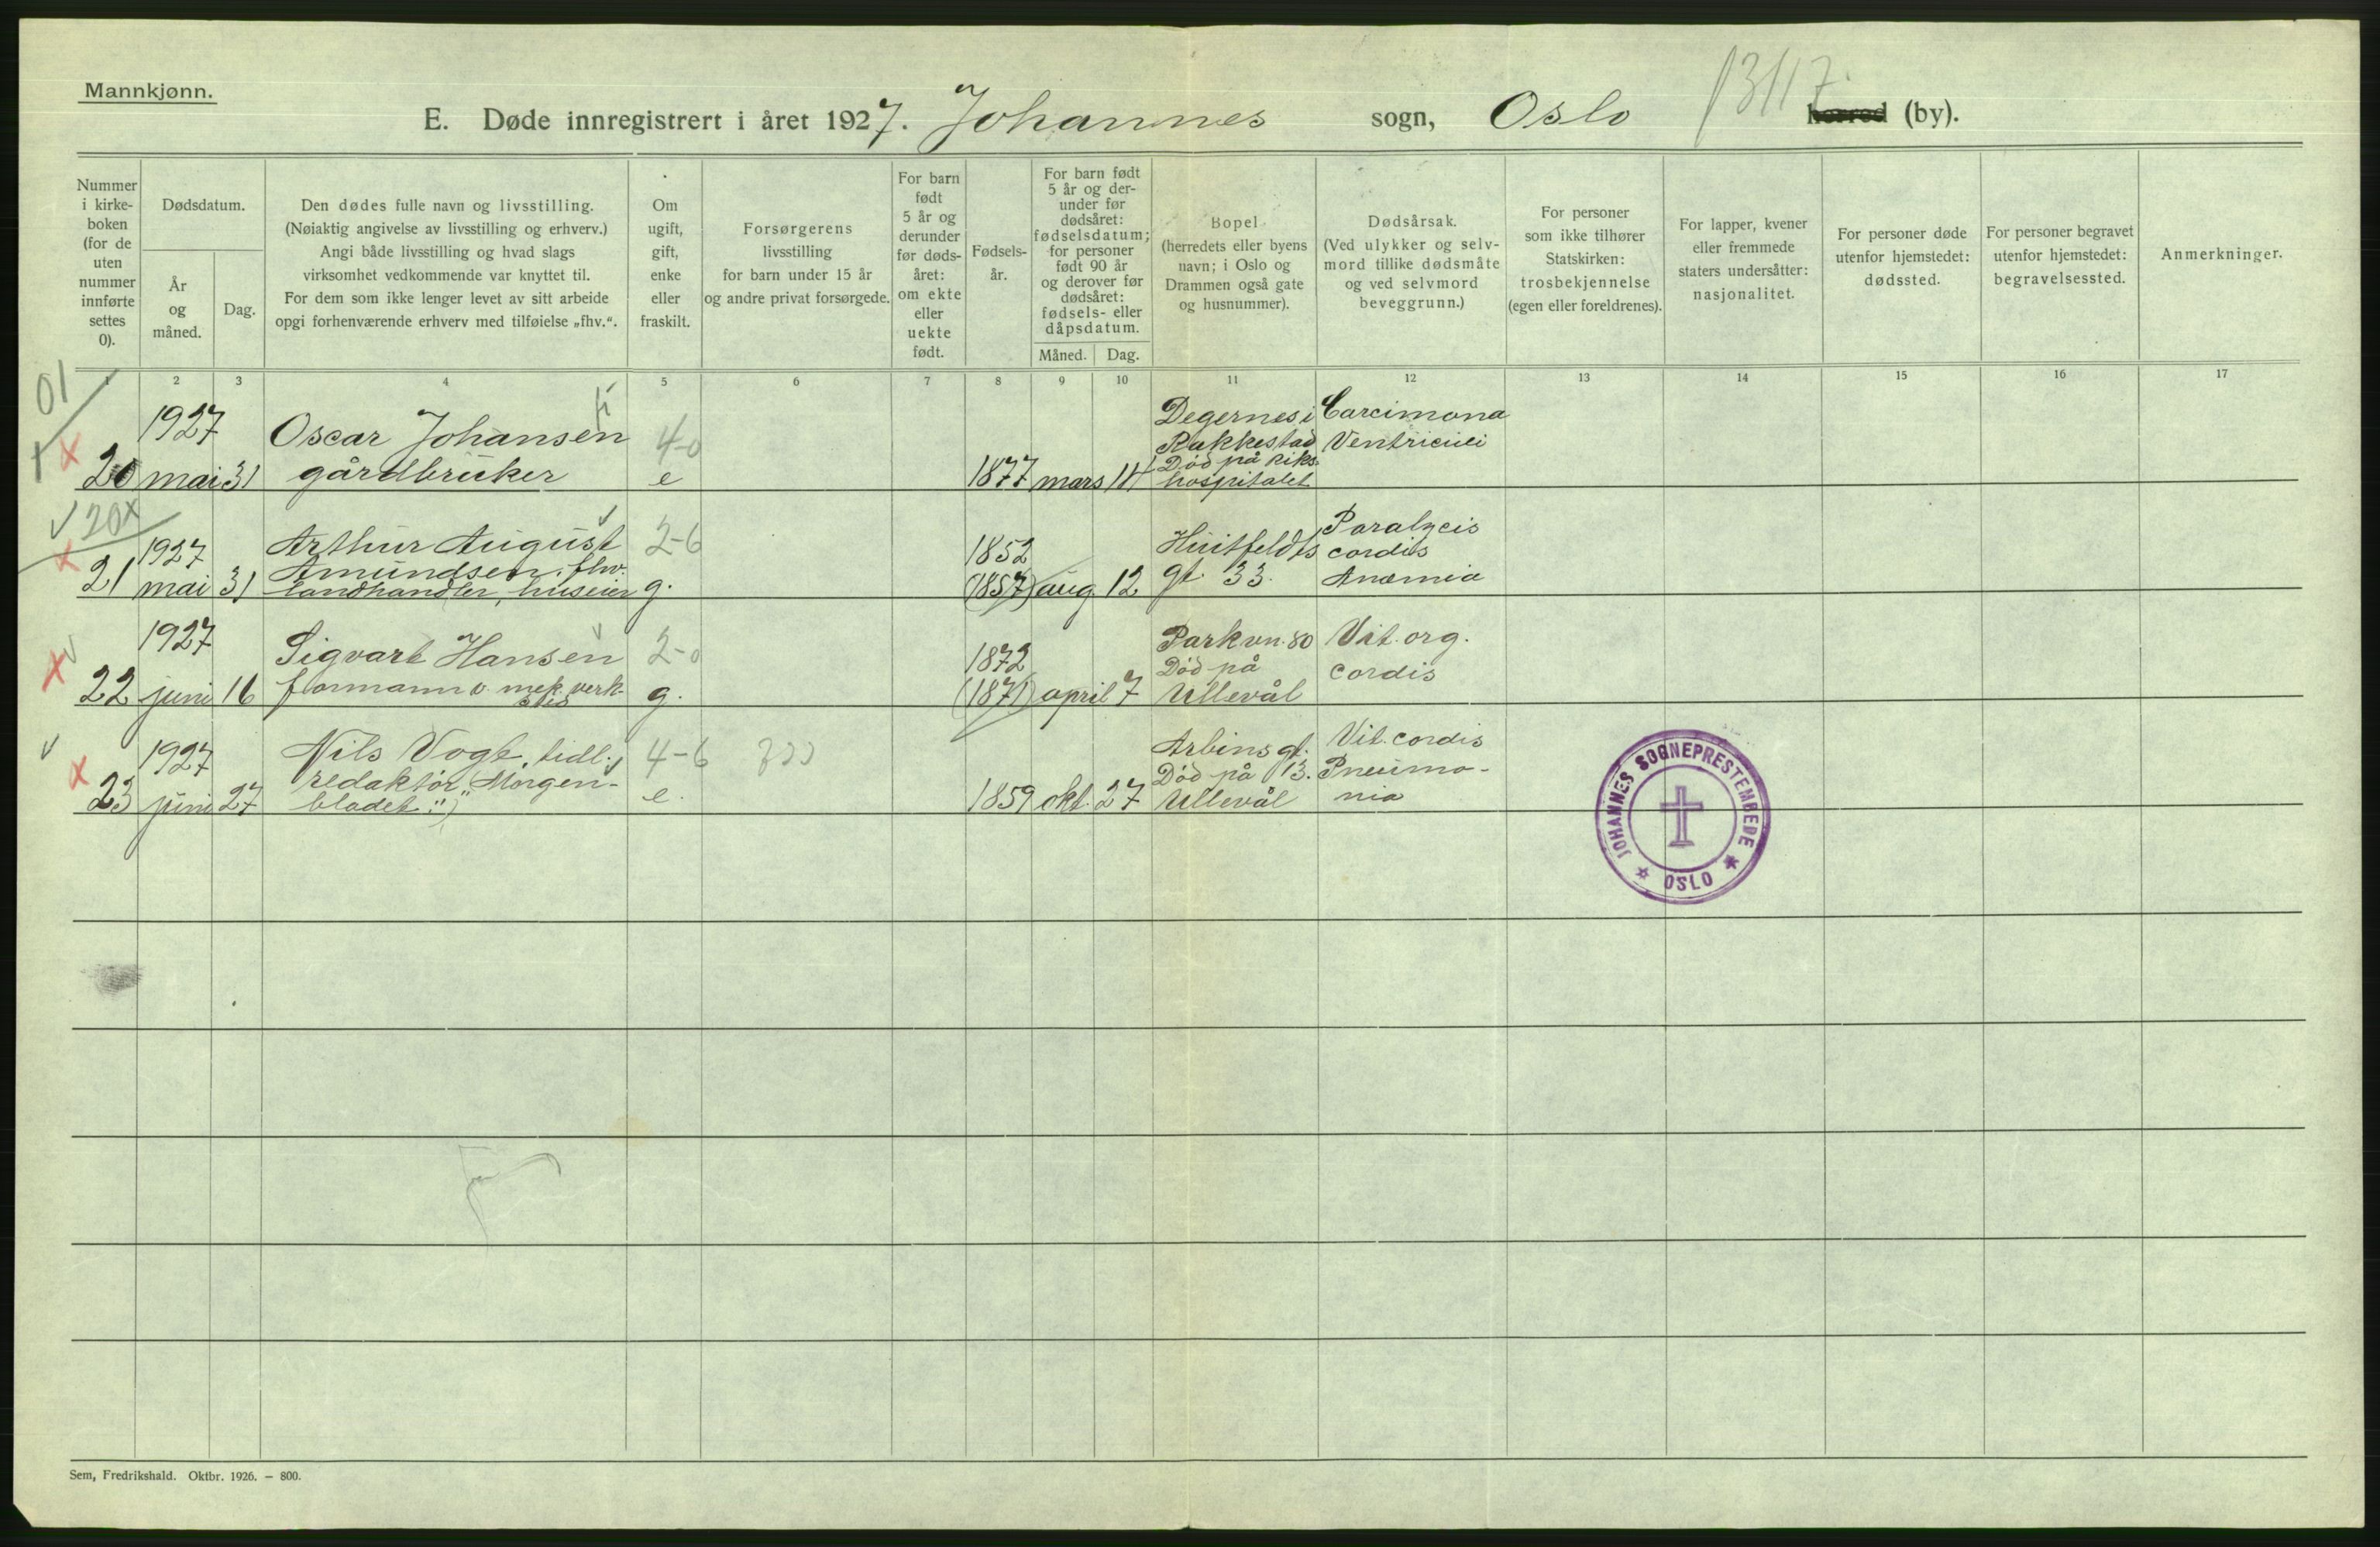 Mannkjønn.
13/17.
E. Døde innregistrert i året 1927. Johannes sogn, Oslo herred (by).
Nummer i kirke-boken (for de uten nummer innførte settes 0).
Dødsdatum.
År og måned.
Dag.
Den dødes fulle navn og livsstilling.
(Nøiaktig angivelse av livsstilling og erhverv.)
Angi både livsstilling og hvad slags
virksomhet vedkommende var knyttet til.
For dem som ikke lenger levet av sitt arbeide
opgi forhenværende erhverv med tilføielse „fhv.“.
Om ugift, gift, enke eller fraskilt.
Forsørgerens
livsstilling
for barn under 15 år
og andre privat forsørgede.
For barn født 5 år og derunder før døds-året: om ekte eller uekte født.
Fødsels-år.
For barn født 5 år og der-under før dødsåret: fødselsdatum; for personer født 90 år og derover før dødsåret: fødsels- eller dåpsdatum.
Måned.
Dag.
Bopel
(herredets eller byens
navn; i Oslo og
Drammen også gate
og husnummer).
Dødsårsak.
(Ved ulykker og selv-
mord tillike dødsmåte
og ved selvmord
beveggrunn.)
For personer
som ikke tilhører
Statskirken:
trosbekjennelse
(egen eller foreldrenes).
For lapper, kvener
eller fremmede
staters undersåtter:
nasjonalitet.
For personer døde
utenfor hjemstedet:
dødssted.
For personer begravet
utenfor hjemstedet:
begravelsessted.
Anmerkninger.
1 2 3 4 5 6 7 8 9 10 11 12 13 14 15 16 17
01
20
1927
mai 31
Oscar Johansen
gårdbruker
4-0
e
1877 mars 11
Degernes i
Rakkestad
Død på Riks
hospitalet
Carcimona
Ventriculi
20x
21
1927
mai 31
Arthur August
Amundsen, fhv.
landhandler, huseier
2-6
g.
1852
(1857) aug. 12
Huitfeldts
gt. 33.
Paralycis
cordis
Anæmia
22
1927
juni 16
Sigvart Hansen
formann v. mek. verk-
sted
2-0
g.
1872
(1871) april 7
Parkvn. 80
Død på
Ullevål
Vit. org.
cordis
23
1927
juni 27
Nils Vogt, tidl.
redaktør „Morgen-
bladet")
4-6
e.
1859 okt. 27
Arbins gt.
Død på 13.
Ullevål
Vit. cordis
Pneumo-
nia
JOHANNES SOGNEPRESTEMBEDE
OSLO
Sem, Fredrikshald. Oktbr. 1926. — 800.